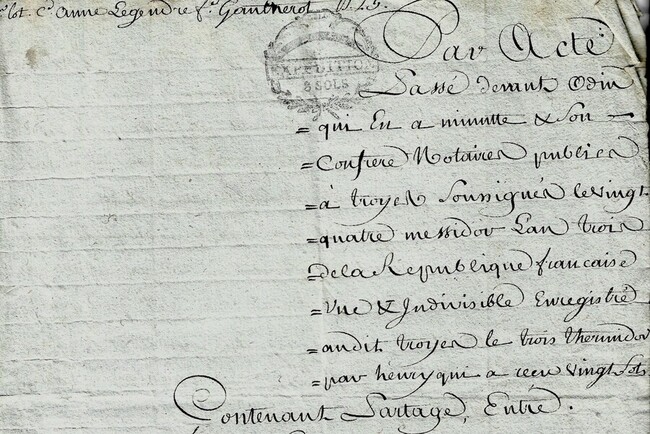 lot Cne anne Legendre fe Gautherot
EXPEDITION
8 SOLS
Par Acte
Passé devant Odin
= qui En a minutte & Son
= Confrere Notaires publics
= à troyes Soussignés le vingt
= quatre messidor L'an trois
= de la Republique francaise
= Vne & Indivisible Enregistré
= audit troyes le trois thermidor
= par hénry qui a recu vingt Sols
Contenant Partage, Entre.